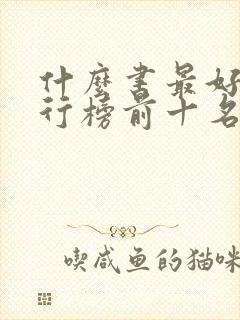 什麼書最好
行榜前十名
喫咸魚的猫咪